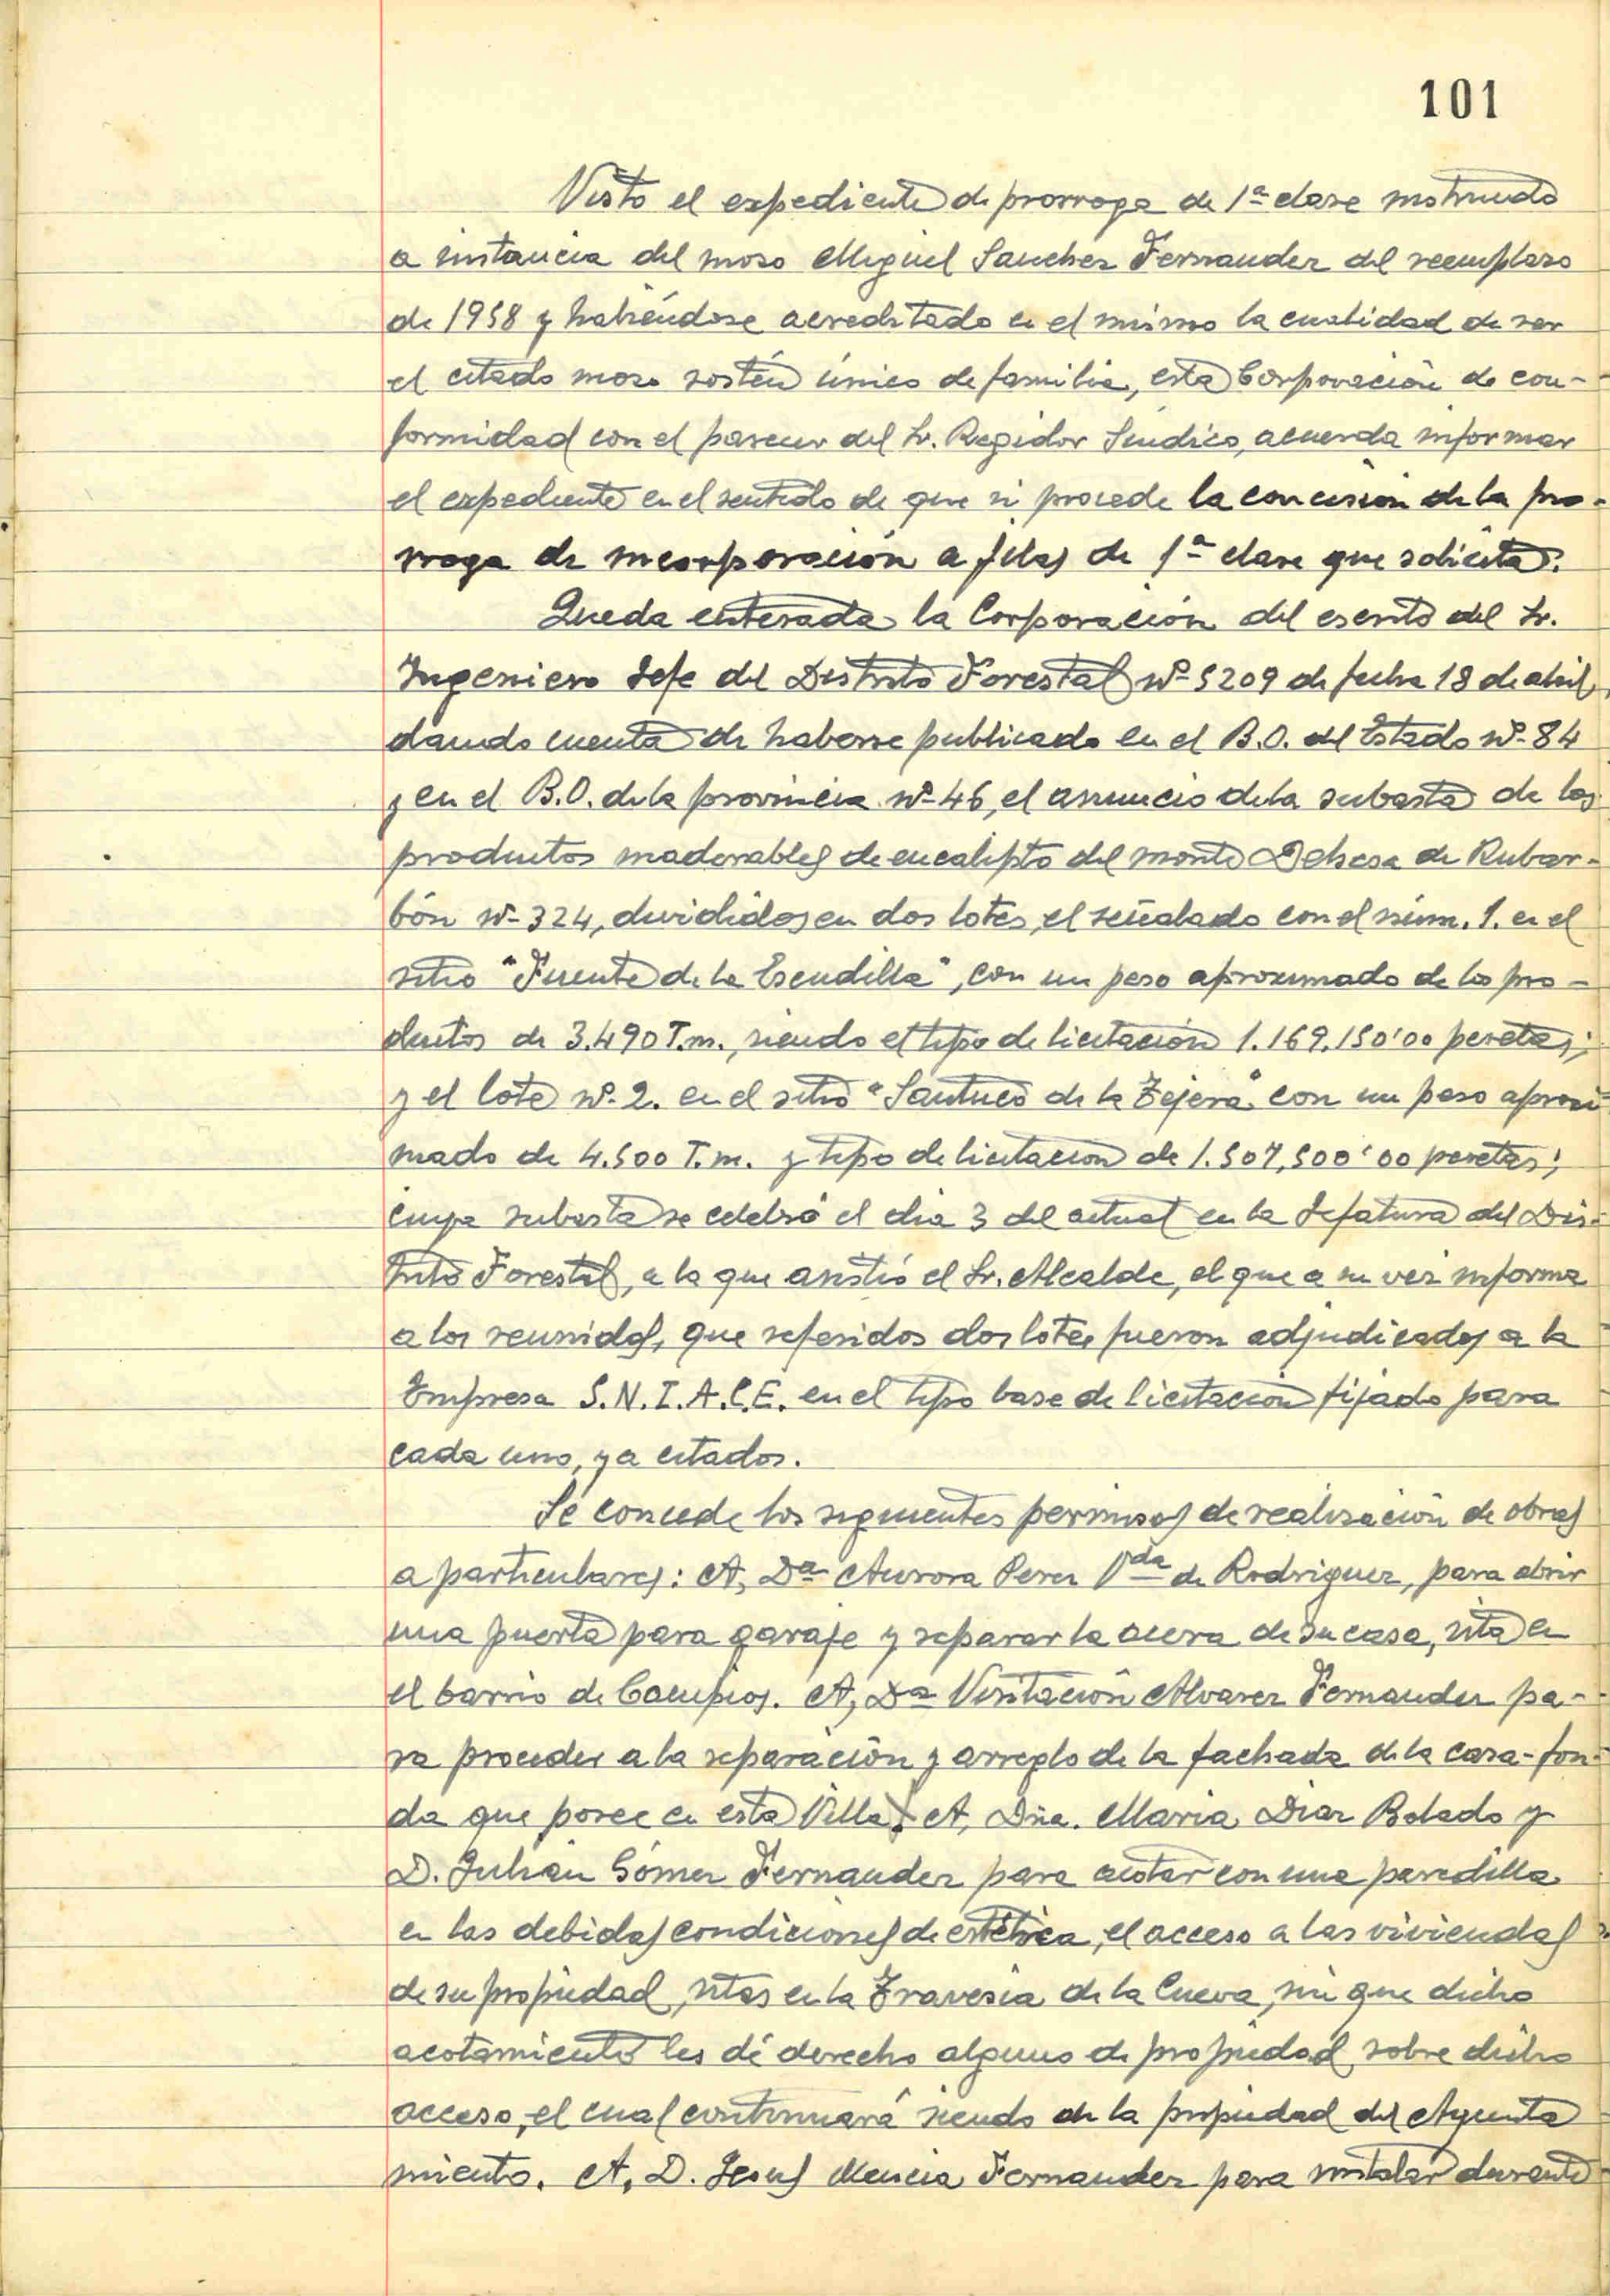 101
Visto el expediente de prorroga de 1ª clase instruido
a instancia del mozo Miguel Sanchez Fernandez del reemplazo
de 1958 y habiéndose acreditado en el mismo la cualidad de ser
el citado mozo sostén único de familia, esta Corporación de con-
formidad con el parecer del Sr. Regidor Síndico, acuerda informar
el expediente en el sentido de que si procede la concesión de la pro-
rroga de incorporación a filas de 1ª clase que solicita.
Queda enterada la Corporación del escrito del Sr.
Ingeniero Jefe del Distrito Forestal nº 5209 de fecha 18 de abril,
dando cuenta de haberse publicado en el B.O. del Estado nº 84
y en el B.O. de la provincia nº 46, el anuncio de la subasta de los
productos maderables de eucalipto del monte Dehesa de Rubar-
bón nº 324, divididos en dos lotes, el señalado con el núm. 1. en el
sitio "Fuente de la Escudilla", con un peso aproximado de los pro-
ductos de 3.490 T.m., siendo el tipo de licitación 1.169.150'00 pesetas;
y el lote nº 2. en el sitio "Santuco de la Tejera" con un peso aproxi-
mado de 4.500 T.m. y tipo de licitacion de 1.507,500'00 pesetas;
cuya subasta se celebró el dia 3 del actual en la Jefatura del Dis-
trito Forestal, a la que asistió el Sr. Alcalde, el que a su vez informa
a los reunidos, que referidos dos lotes fueron adjudicados a la
Empresa S.N.I.A.C.E. en el tipo base de licitación fijado para
cada uno, ya citados.
Se concede los siguientes permisos de realización de obras
a particulares: A, Dª Aurora Perez Vda de Rodriguez, para abrir
una puerta para garaje y reparar la acera de su casa, sita en
el barrio de Campios. A, Dª Visitación Alvarez Fernandez pa-
ra proceder a la reparación y arreglo de la fachada de la casa-fon-
da que posee en esta Villa. A, Dña. Maria Diaz Bolado y
D. Julián Gómez Fernandez para acotar con una paredilla
en las debidas condiciones de estética, el acceso a las viviendas
de su propiedad, sitas en la Travesia de la Cueva, sin que dicho
acotamiento les dé derecho alguno de propiedad sobre dicho
acceso, el cual continuará siendo de la propiedad del Ayunta
miento. A, D. Jesus Mencia Fernandez para instalar durante